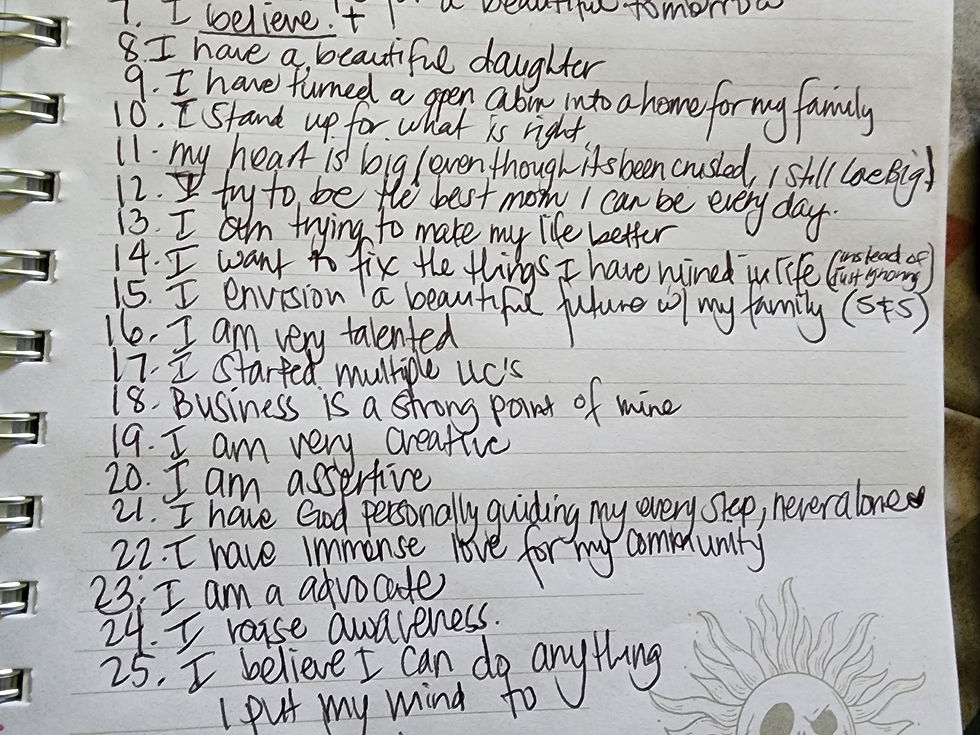 7. I believe. + a beautiful tomorrow
8. I have a beautiful daughter
9. I have turned a open cabin into a home for my family
10. I stand up for what is right.
11. my heart is big/even though its been crushed, I still Love Big!
12. I try to be the best mom I can be every day.
13. I am trying to make my life better
14. I want to fix the things I have ruined in life (instead of just ignoring)
15. I envision a beautiful future w/ my family (S&S)
16. I am very talented
17. I started multiple LLC's
18. Business is a strong point of mine
19. I am very creative
20. I am assertive
21. I have God personally guiding my every step, never alone
22. I have immense love for my community
23. I am a advocate
24. I raise awareness.
25. I believe I can do anything
I put my mind to